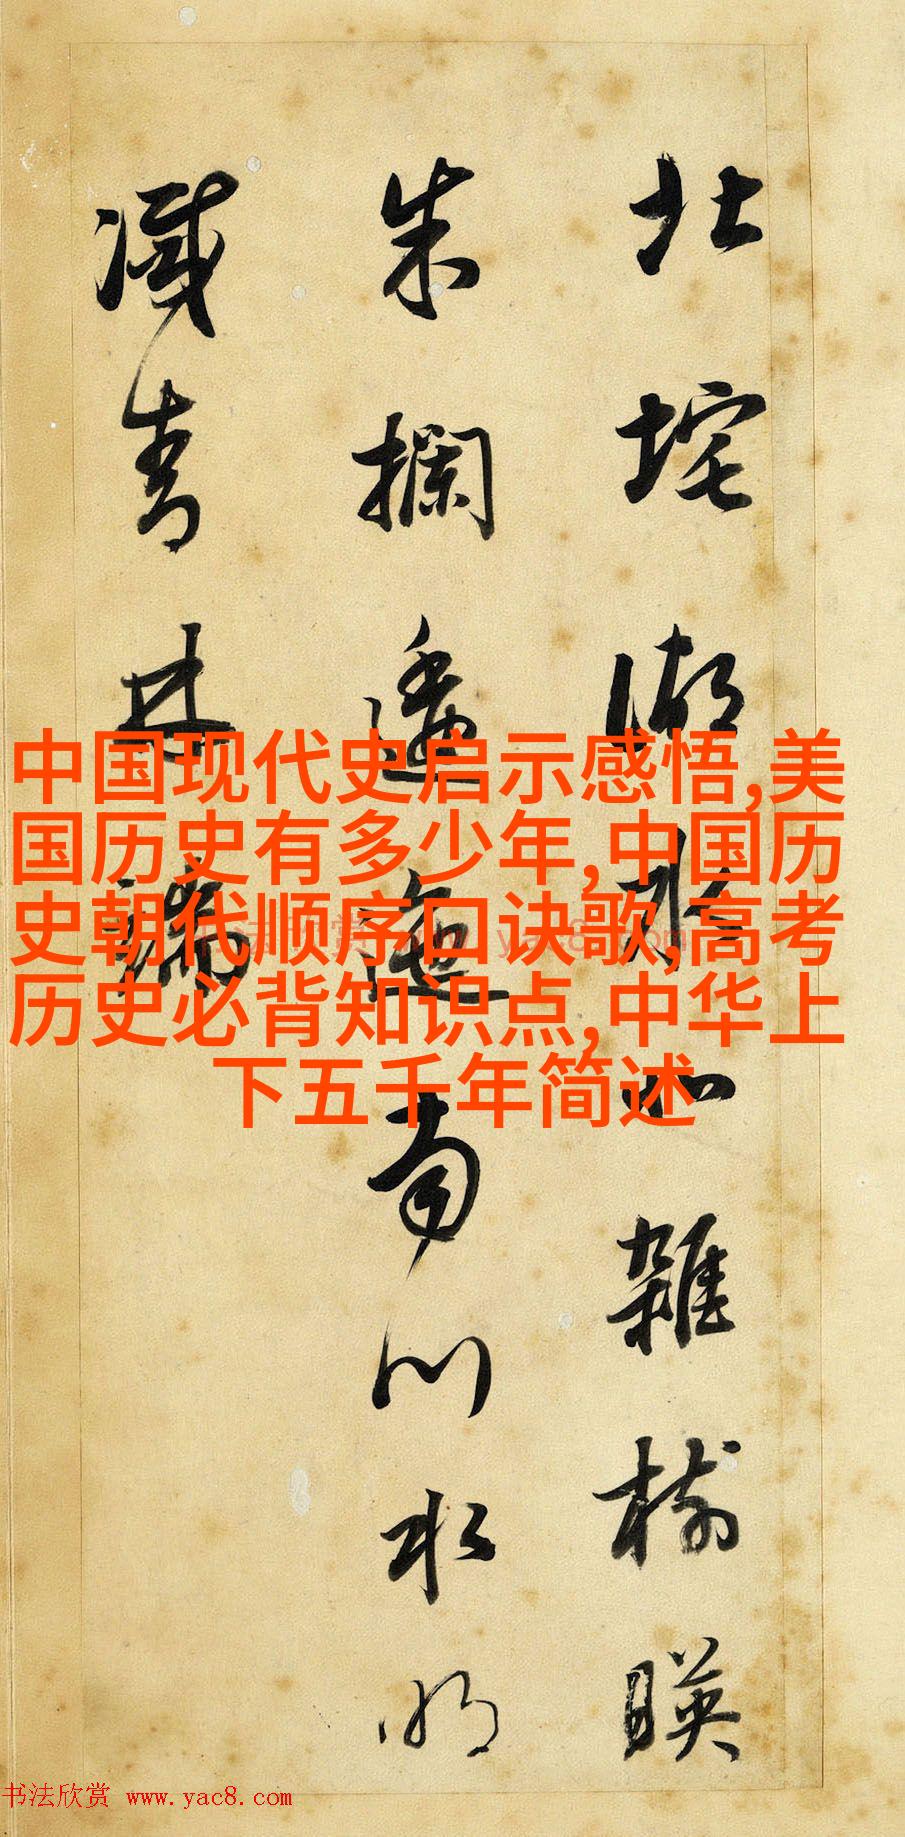 北垞湖水北雜樹暎
朱攔逶迤南川水明
滅青林端
中国现代史启示感悟,美
国历史有多少年,中国历
史朝代顺序口诀歌,高考
历史必背知识点,中华上
下五千年简述
书法欣赏 www.yac8.com